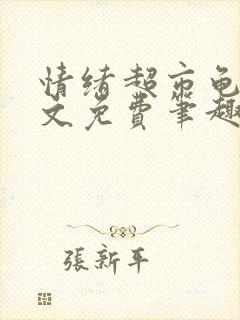 情绪超市龟
文免费笔趣
張新平